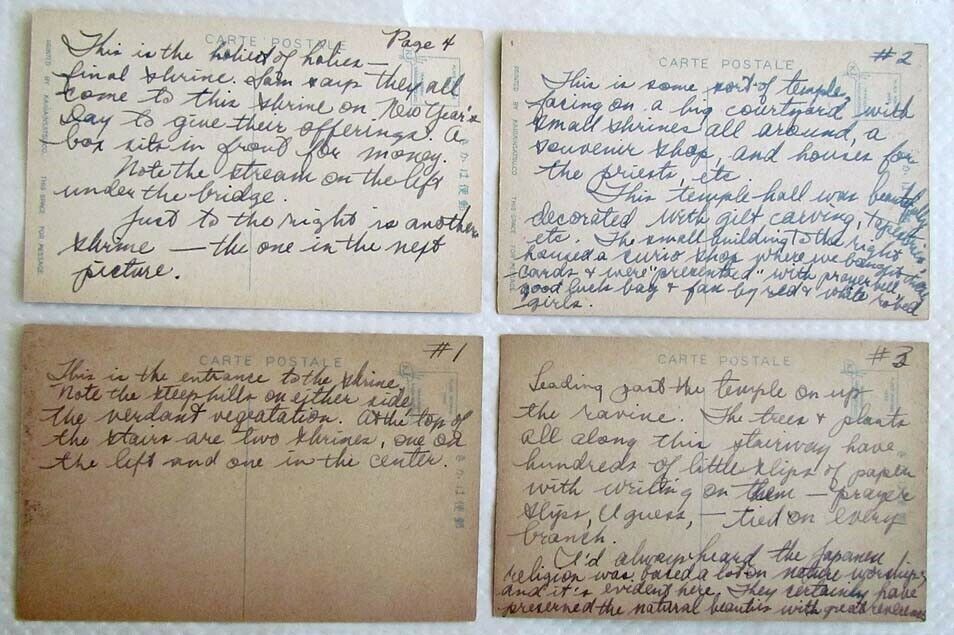 CARTE POSTALE
Page 4
This is the holiest of holies —
final shrine. Sam says they all
come to this shrine on New Year's
Day to give their offerings. A
box sits in front for money.
Note the stream on the left
under the bridge.
Just to the right is another
shrine — the one in the next
picture.
PRINTED BY KAIGANSATSUDO
THIS SPACE FOR MESSAGE
CARTE POSTALE
#2
This is some sort of temple,
facing on a big courtyard with
small shrines all around, a
souvenir shop, and houses for
the priests, etc
This temple-hall was beautifully
decorated with gilt carving, tapestries
etc. The small building to the right
housed a curio shop where we bought these
cards & were "presented" with prayer bell
good luck bag & fan by red & white robed
girls.
THIS SPACE FOR MESSAGE
CARTE POSTALE
#1
This is the entrance to the shrine
Note the steep hills on either side
the verdant vegeatation. At the top of
the stairs are two shrines, one on
the left and one in the center.
CARTE POSTALE
#3
Leading past the temple on up
the ravine. The trees & plants
all along this stairway have
hundreds of little slips of paper
with writing on them — prayer
slips, I guess, — tied on every
branch.
I'd always heard the Japanese
religion was based a lot on nature worship,
and it's evident here. They certainly have
preserved the natural beauties with great reverence